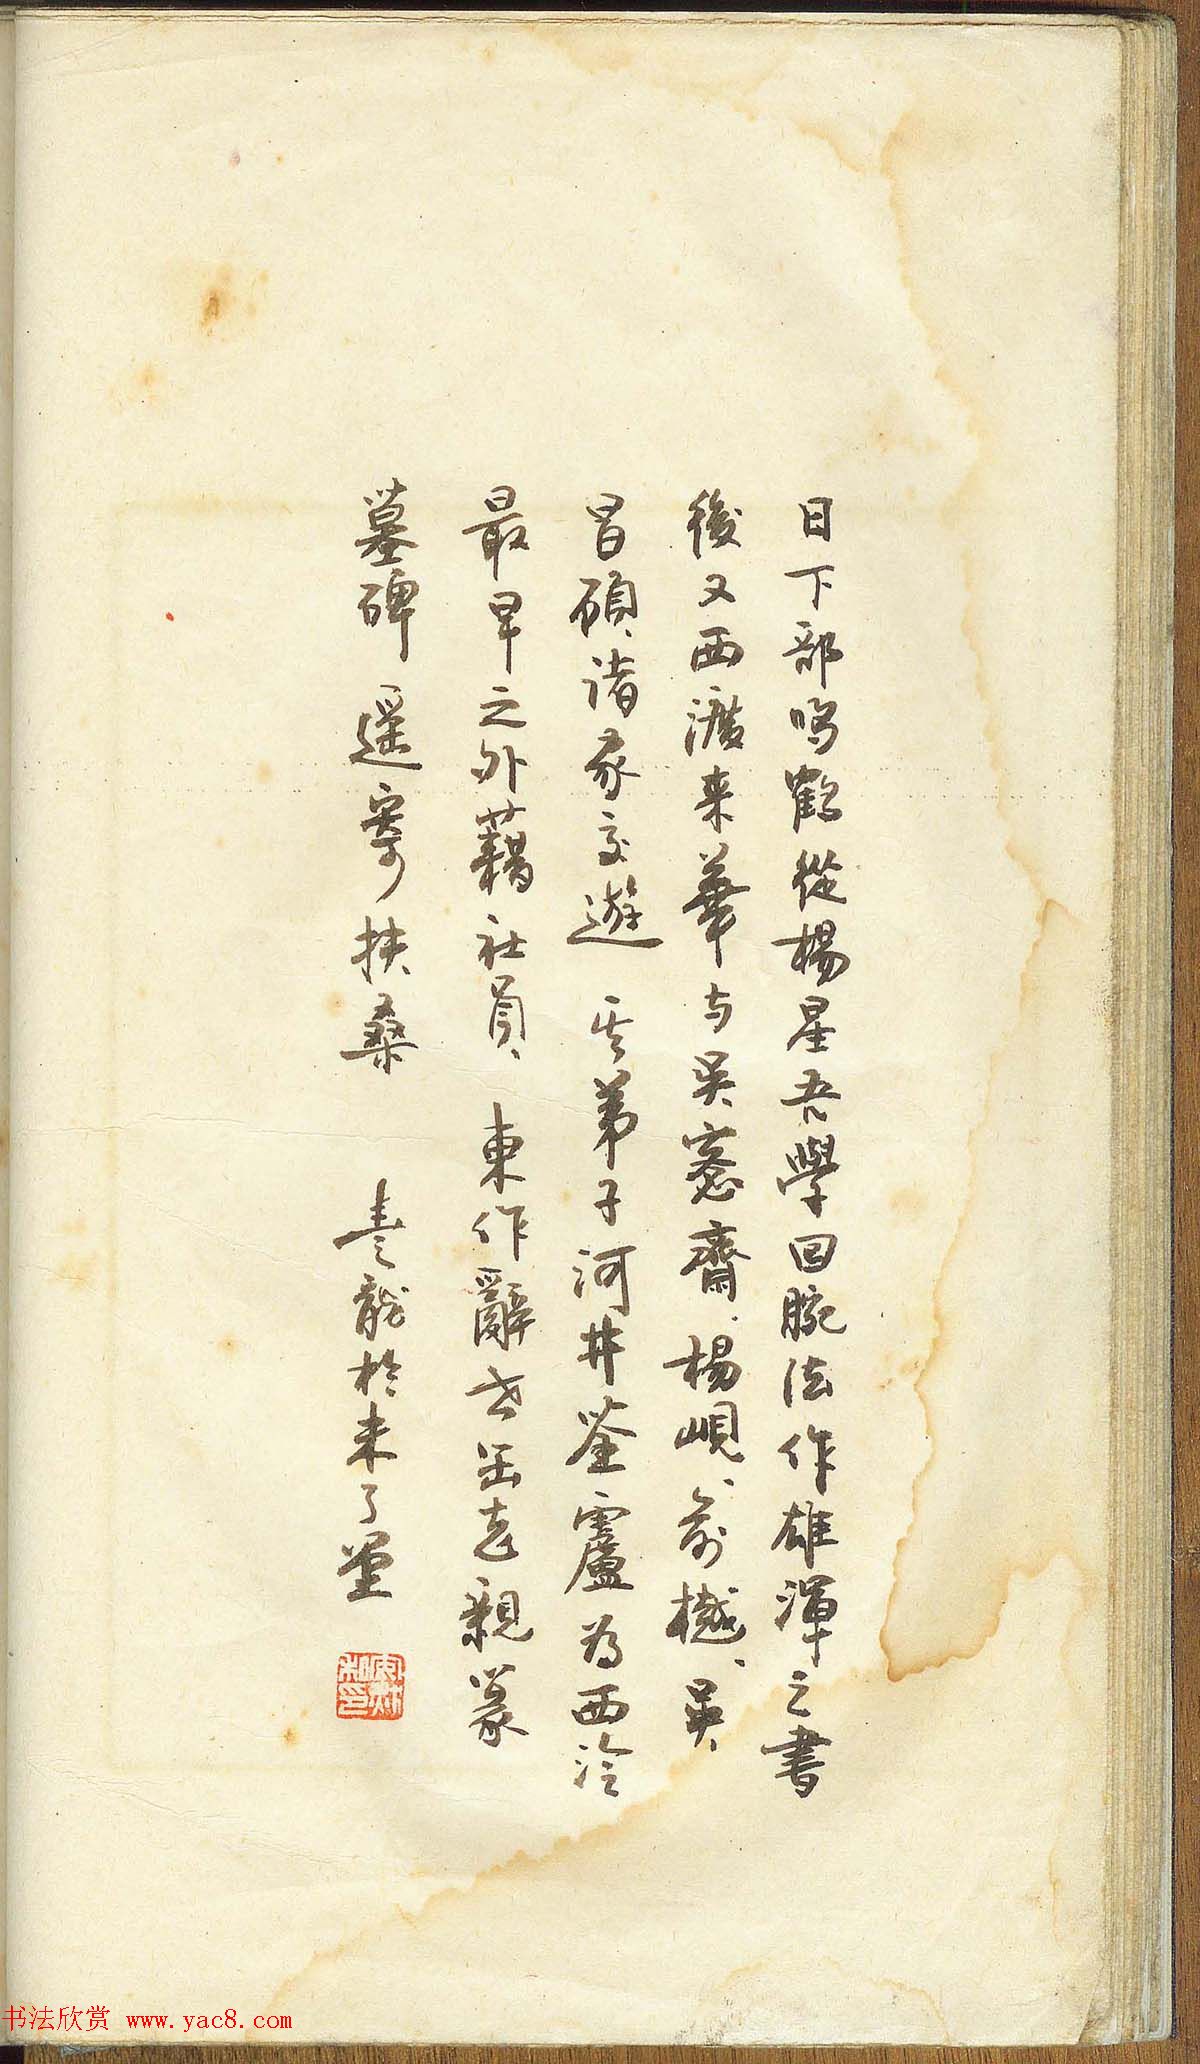 日下部鳴鶴從楊星吾學回腕法作雄渾之書
後又西渡来華与吴愙齋、楊峴、俞樾、吴
昌碩、诸家交遊 其弟子河井荃廬为西泠
最早之外藉社員、東作辭世缶老親篆
墓碑 遥寄扶桑 龍於未了堂
书法欣赏 www.yac8.com